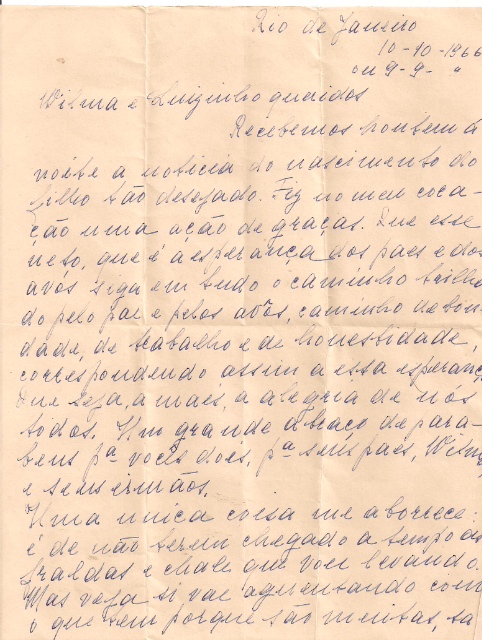 Rio de Janeiro
10-10-1966
ou 9-9- "
Wilma e Luizinho queridos
Recebemos hontem á
noite a noticia do nascimento do
filho tão desejado. Fiz no meu cora-
ção uma ação de graças. Que esse
neto, que é a esperança dos paes e dos
avós siga em tudo o caminho trilha
do pelo pae e pelos avôs, caminho de bon
dade, de trabalho e de honestidade,
correspondendo assim a essa esperanç
Que seja, a mais, a alegria de nós
todos. Um grande abraço de para-
bens pª vocês dois, pª seus paes, Wilma
e seus irmãos.
Uma unica coisa me aborrece:
é de não terem chegado a tempo as
fraldas e chale que vou levando.
Mas veja si vae aguentando com
o que tem porque são muitas,